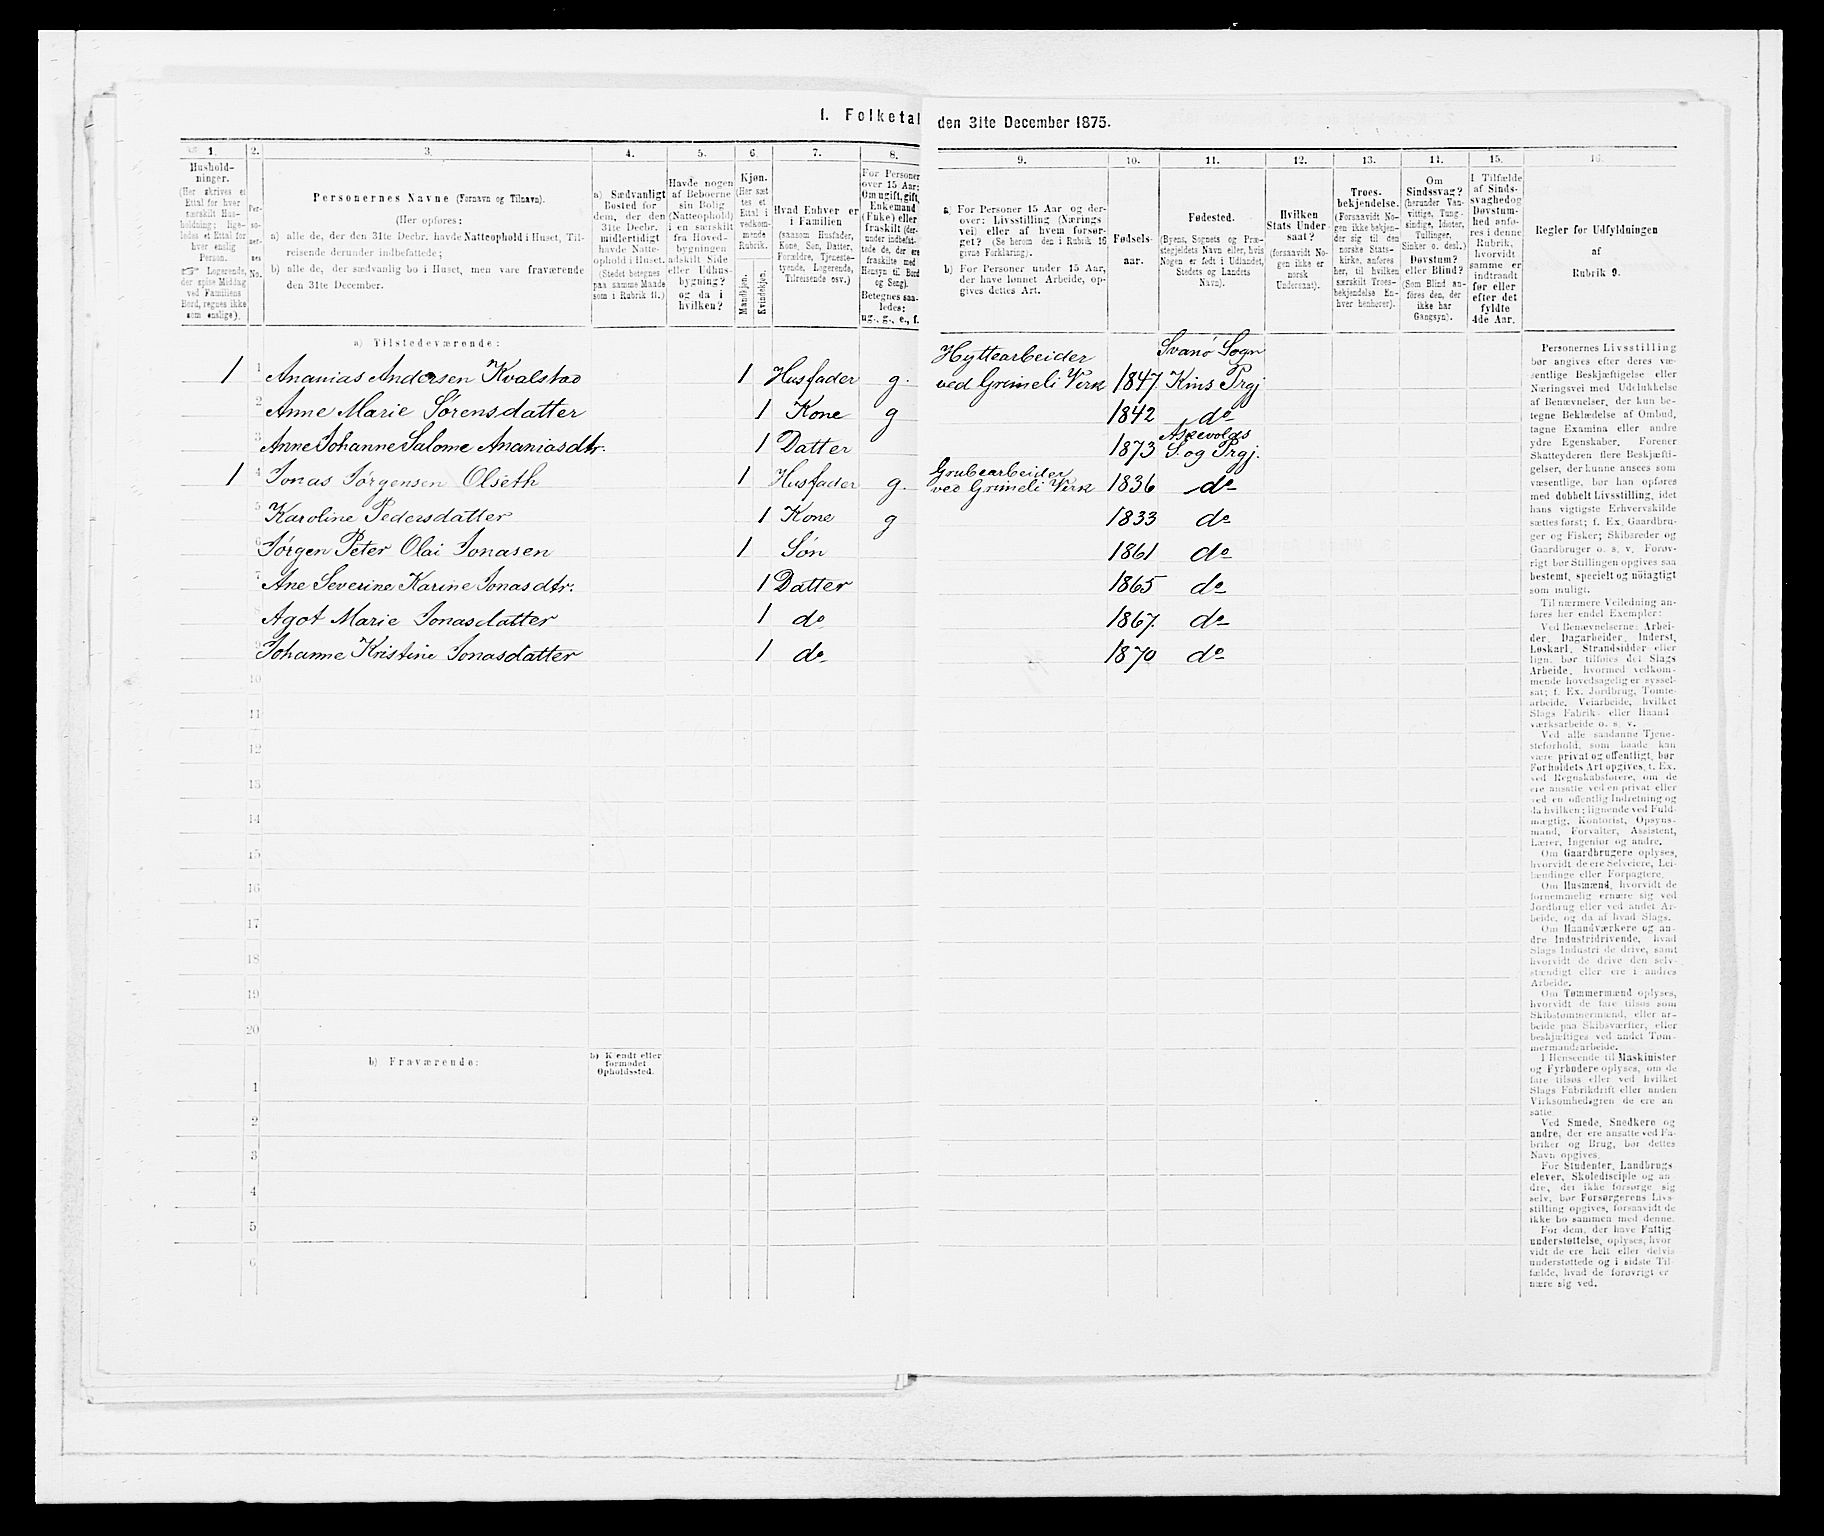 1. Folketal den 31te December 1875.
1. 2. 3. 4. 5. 6. 7. 8. 9. 10. 11. 12. 13. 14. 15. 16.
Hushold-
ninger.
(Her skrives et
Ettal for hver
særskilt Hus-
holdning; lige-
ledes et Ettal for
hver enslig
Person.
☞ Logerende,
der spise Middag
ved Familiens
Bord, regnes ikke
som enslige).
Per-
so-
ner-
nes
No.
Personernes Navne (Fornavn og Tilnavn).
(Her opføres:
a) alle de, der den 31te Decbr. havde Natteophold i Huset, Til-
reisende derunder indbefattede;
b) alle de, der sædvanlig bo i Huset, men vare fraværende
den 31te December.
a) Sædvanligt
Bosted for
dem, der den
31te Decbr.
midlertidigt
havde Natte-
ophold i Huset.
(Stedet betegnes
paa samme Maade
som i Rubrik 11.)
Havde nogen
af Beboerne
sin Bolig
(Natteophold)
i en særskilt
fra Hoved-
bygningen
adskilt Side
eller Udhus-
bygning?
og da i
hvilken?
Kjøn.
(Her sæt-
tes et
Ettal i
vedkom-
mende
Rubrik.
Mandkjøn.
Kvindekjøn.
Hvad Enhver er
i Familien
(saasom Husfader,
Kone, Søn, Datter,
Forældre, Tjeneste-
tyende, Logerende,
Tilreisende osv.)
For Personer
over 15 Aar:
Om ugift, gift,
Enkemand
(Enke) eller
fraskilt (der-
under indbefat-
tede de, der ere
fraskilte med
Hensyn til Bord
og Seng).
Betegnes saa-
ledes:
ug., g., e., f.
a) For Personer 15 Aar og der-
over: Livsstilling (Nærings-
vei) eller af hvem forsør-
get? (Se herom den i Rubrik 16
givne Forklaring).
b) For Personer under 15 Aar,
der have lønnet Arbeide, op-
gives dettes Art.
Fødsels-
aar.
Fødested.
(Byens, Sognets og Præ-
stegjeldets Navn eller, hvis
Nogen er født i Udlandet,
Stedets og Landets
Navn).
Hvilken
Stats Under-
saat?
(forsaavidt No-
gen ikke er
norsk
Undersaat).
Troes-
bekjendelse.
(Forsaavidt No-
gen ikke bekjen-
der sig til den
norske Stats-
kirke, anføres
her, til hvilken
særskilt Troes-
bekjendelse En-
hver henhører).
Om
Sindssvag?
(herunder Van-
vittige, Tung-
sindige, Idioter,
Tullinger,
Sinker o. desl.)
Døvstum?
eller Blind?
(Som Blind an-
føres den, der
ikke har
Gangsyn).
I Tilfælde
af Sinds-
svaghed og
Døvstum-
hed anfø-
res i denne
Rubrik,
hvorvidt
samme er
indtraadt
før eller
efter det
fyldte
4de Aar.
Regler for Udfyldningen
af
Rubrik 9.
a) Tilstedeværende:
Hyttearbeider Svanø Sogn
1 1 Ananias Andersen Kvalstad 1 Husfader g. ved Grimeli Verk 1847 Kins Prgj
2 Anne Marie Sørensdatter 1 Kone g 1842 do
Askevolds
3 Anne Johanne Salome Ananiasdtr. 1 Datter 1873 S. og Prgj.
Grubearbeider
1 4 Jonas Jørgensen Olseth 1 Husfader g. ved Grimeli Verk 1836 do
5 Karoline Pedersdatter 1 Kone g 1833 do
6 Jørgen Peter Olai Jonasen 1 Søn 1861 do
7 Ane Severine Karine Jonasdtr: 1 Datter 1865 do
8 Agot Marie Jonasdatter 1 do 1867. do
9 Johanne Kristine Jonasdatter 1 do 1870 do
10
11
12
13
14
15
16
17
18
19
20
b) Fraværende:
b) Kjendt eller
formodet
Opholdssted.
1
2
3
4
5
6
Personernes Livsstilling
bør angives efter deres væ-
sentlige Beskjæftigelse eller
Næringsvei med Udelukkelse
af Benævnelser, der kun be-
tegne Beklædelse af Ombud,
tagne Examina eller andre
ydre Egenskaber. Forener
Skatteyderen flere Beskjæfti-
gelser, der kunne ansees som
væsentlige, bør han opføres
med dobbelt Livsstilling, idet
hans vigtigste Erhvervskilde
sættes først; f. Ex. Gaardbru-
ger og Fisker; Skibsreder og
Gaardbruger o. s. v. Forøv-
rigt bør Stillingen opgives saa
bestemt, specielt og nøiagtigt
som muligt.
Til nærmere Veiledning an-
føres her endel Exempler:
Ved Benævnelserne: Arbei-
der, Dagarbeider, Inderst,
Løskarl, Strandsidder eller
lign. bør tilføies det Slags
Arbeide, hvormed vedkom-
mende hovedsagelig er syssel-
sat; f. Ex. Jordbrug, Tomte-
arbeide, Veiarbeide, hvilket
Slags Fabrik- eller Haand-
værksarbeide o. s. v.
Ved alle saadanne Tjene-
steforhold, som baade kan
være privat og offentligt, bør
Forholdets Art opgives, f. Ex.
ved Regnskabsførere, om de
ere ansatte ved en privat eller
ved en offentlig Indretning og
da hvilken; lignende ved Fuld-
mægtig, Kontorist, Opsyns-
mand, Forvalter, Assistent,
Lærer, Ingeniør og andre.
Om Gaardbrugere oplyses,
hvorvidt de ere Selveiere, Lei-
lændinge eller Forpagtere.
Om Husmænd, hvorvidt de
fornemmelig ernære sig ved
Jordbrug eller ved andet Ar-
beide, og da af hvad Slags.
Om Haandværkere og an-
dre Industridrivende, hvad
Slags Industri de drive, samt
hvorvidt de drive den selv-
stændigt eller ere i andres
Arbeide.
Om Tømmermænd oplyses,
hvorvidt de fare tilsøs som
Skibstømmermænd, eller ar-
beide paa Skibsværfter, eller
beskjæftiges ved andet Tøm-
mermandsarbeide.
I Henseende til Maskinister
og Fyrbødere oplyses, om de
fare tilsøs eller ved hvilket
Slags Fabrikdrift eller anden
Virksomhedsgren de ere an-
satte.
Ved Smede, Snedkere og
andre, der ere ansatte ved Fa-
briker og Brug, bør dettes
Navn opgives.
For Studenter, Landbrugs-
elever, Skoledisciple og an-
dre, der ikke forsørge sig
selv, bør Forsørgerens Livs-
stilling opgives, forsaavidt de
ikke bo sammen med denne.
For dem, der have Fattig-
understøttelse, oplyses, hvor-
vidt de ere helt eller delvis
understøttede og i sidste Til-
fælde, hvad de forøvrigt er-
nære sig ved.